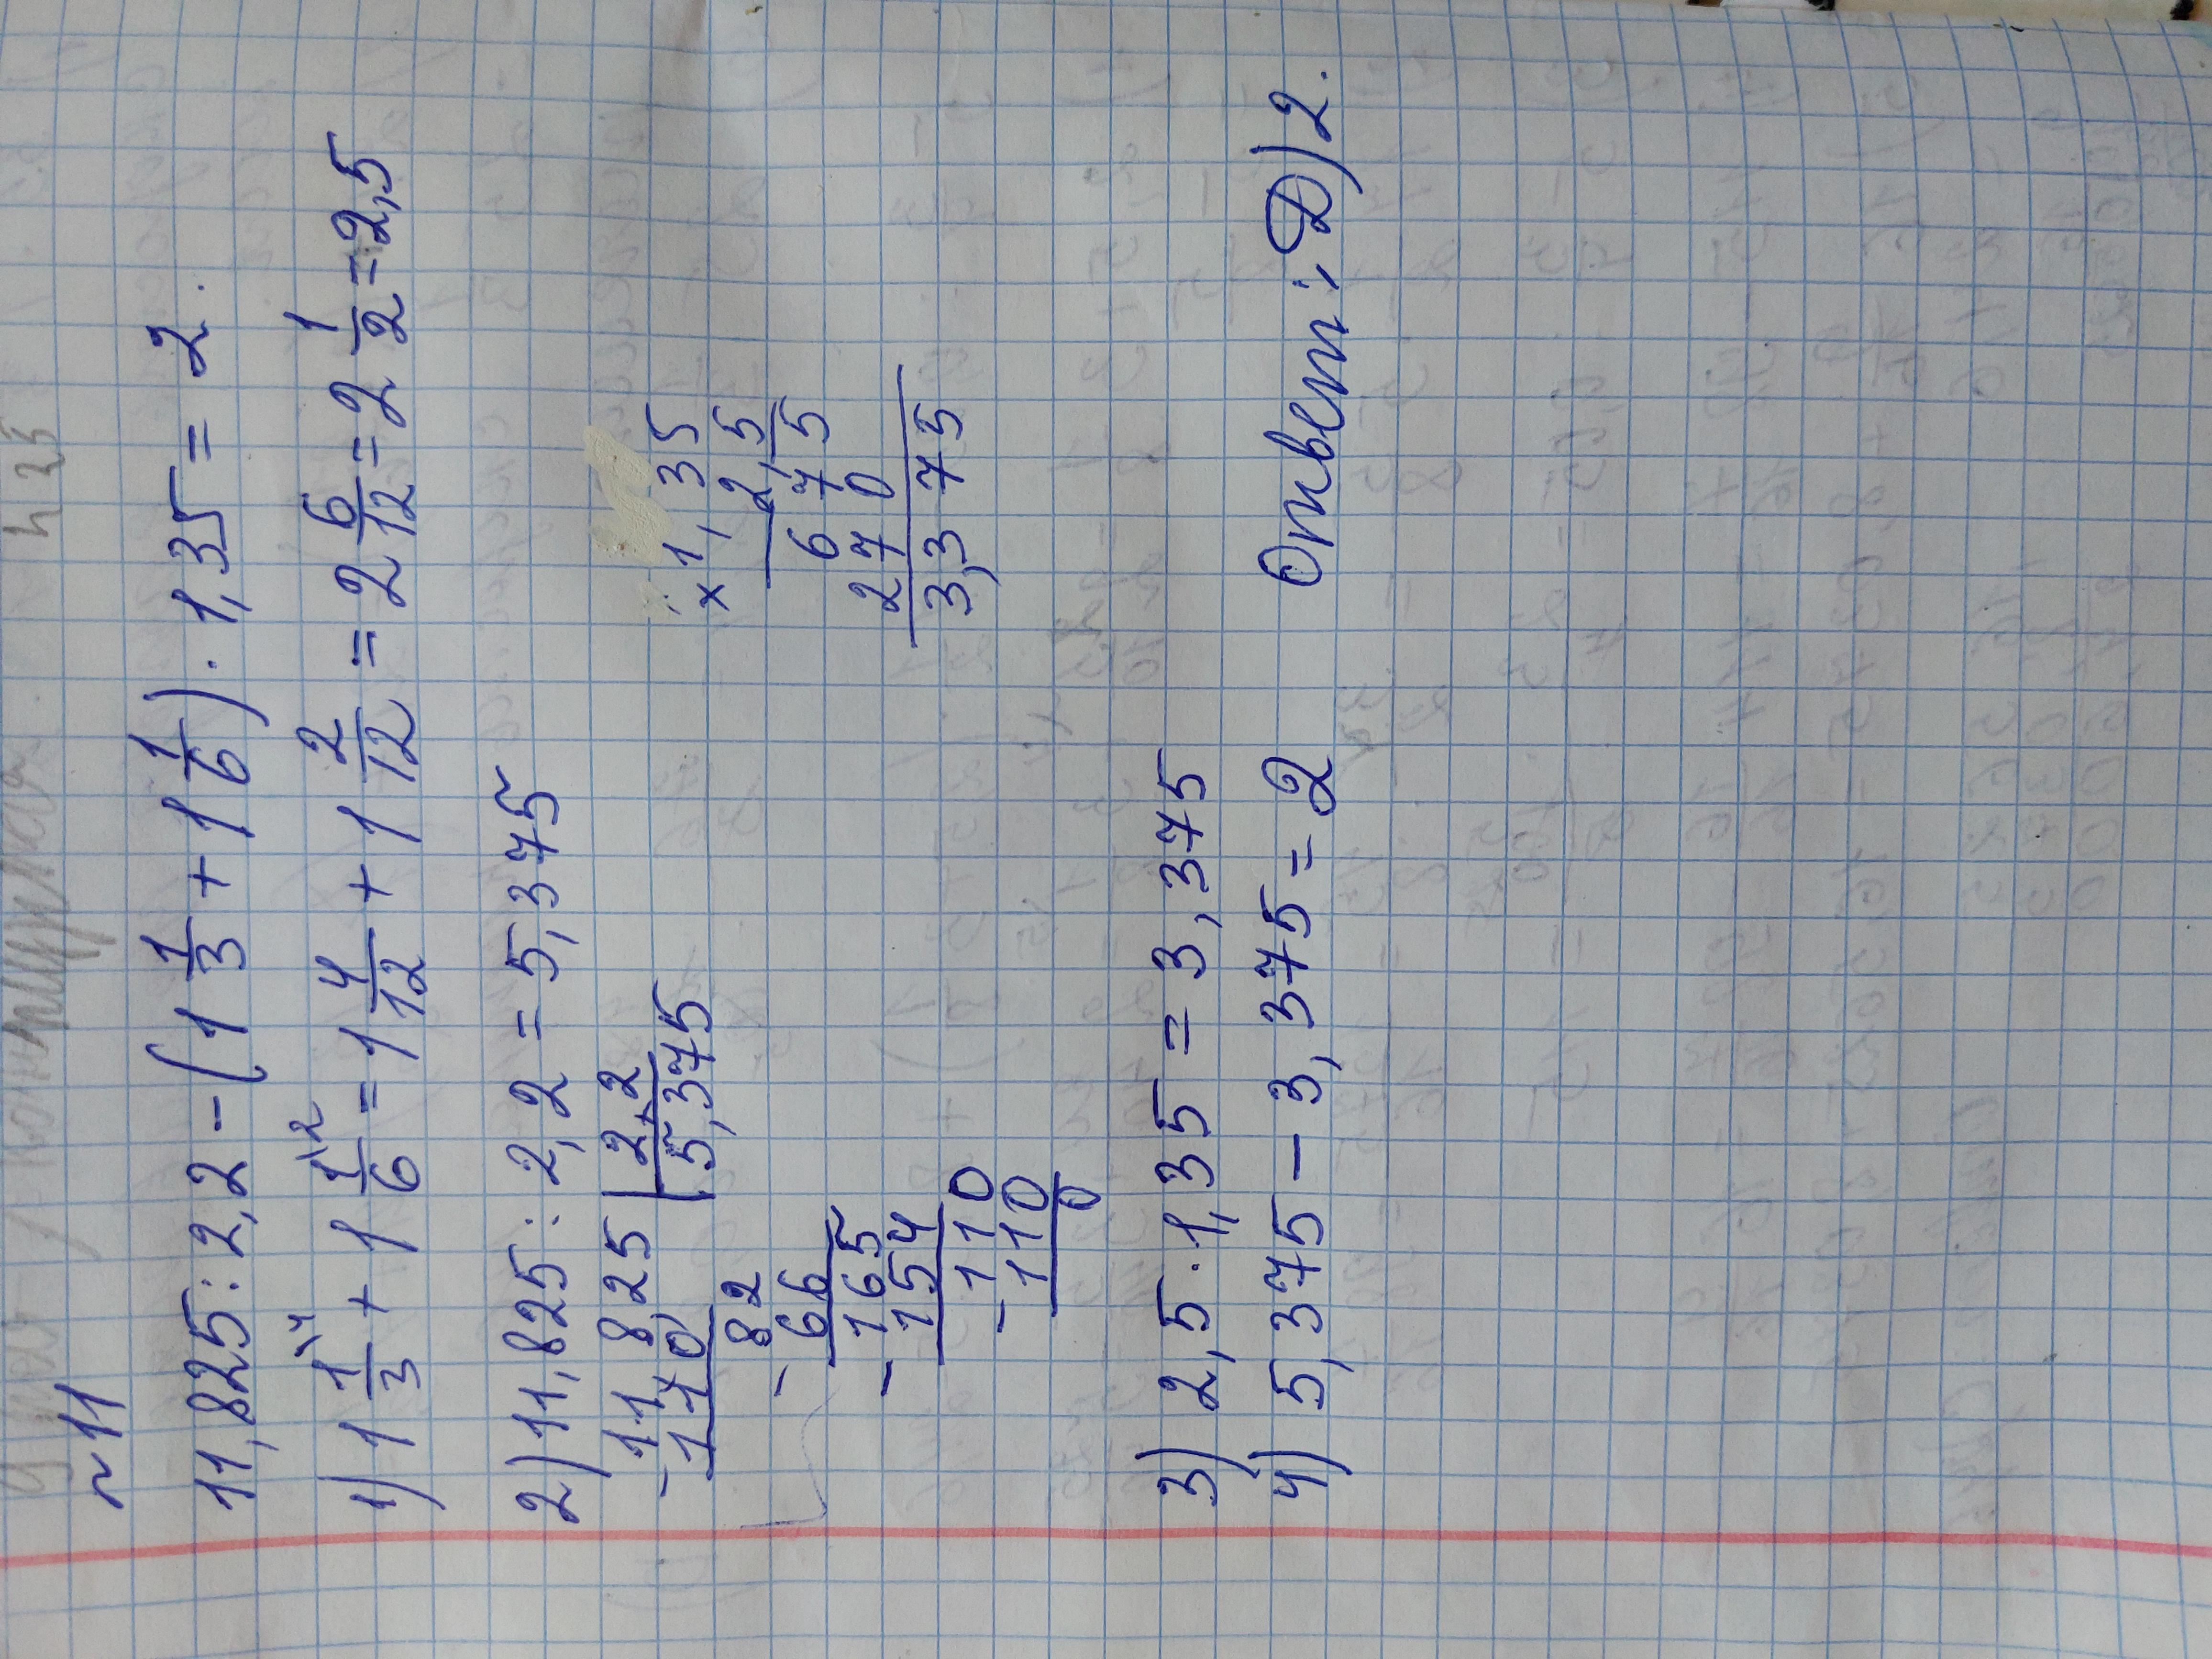 №11
11,825 : 2,2 - (1 1/3 + 1 1/6) · 1,35 = 2.
1) 1 1/3 \4 + 1 1/6 \2 = 1 4/12 + 1 2/12 = 2 6/12 = 2 1/2 = 2,5
2) 11,825 : 2,2 = 5,375
11,825 | 2,2
-110 | 5,375
-82
66
-165
154
-110
110
0
× 1,35
2,5
675
270
3,375
3) 2,5 · 1,35 = 3,375
4) 5,375 - 3,375 = 2
Ответ: Д) 2.